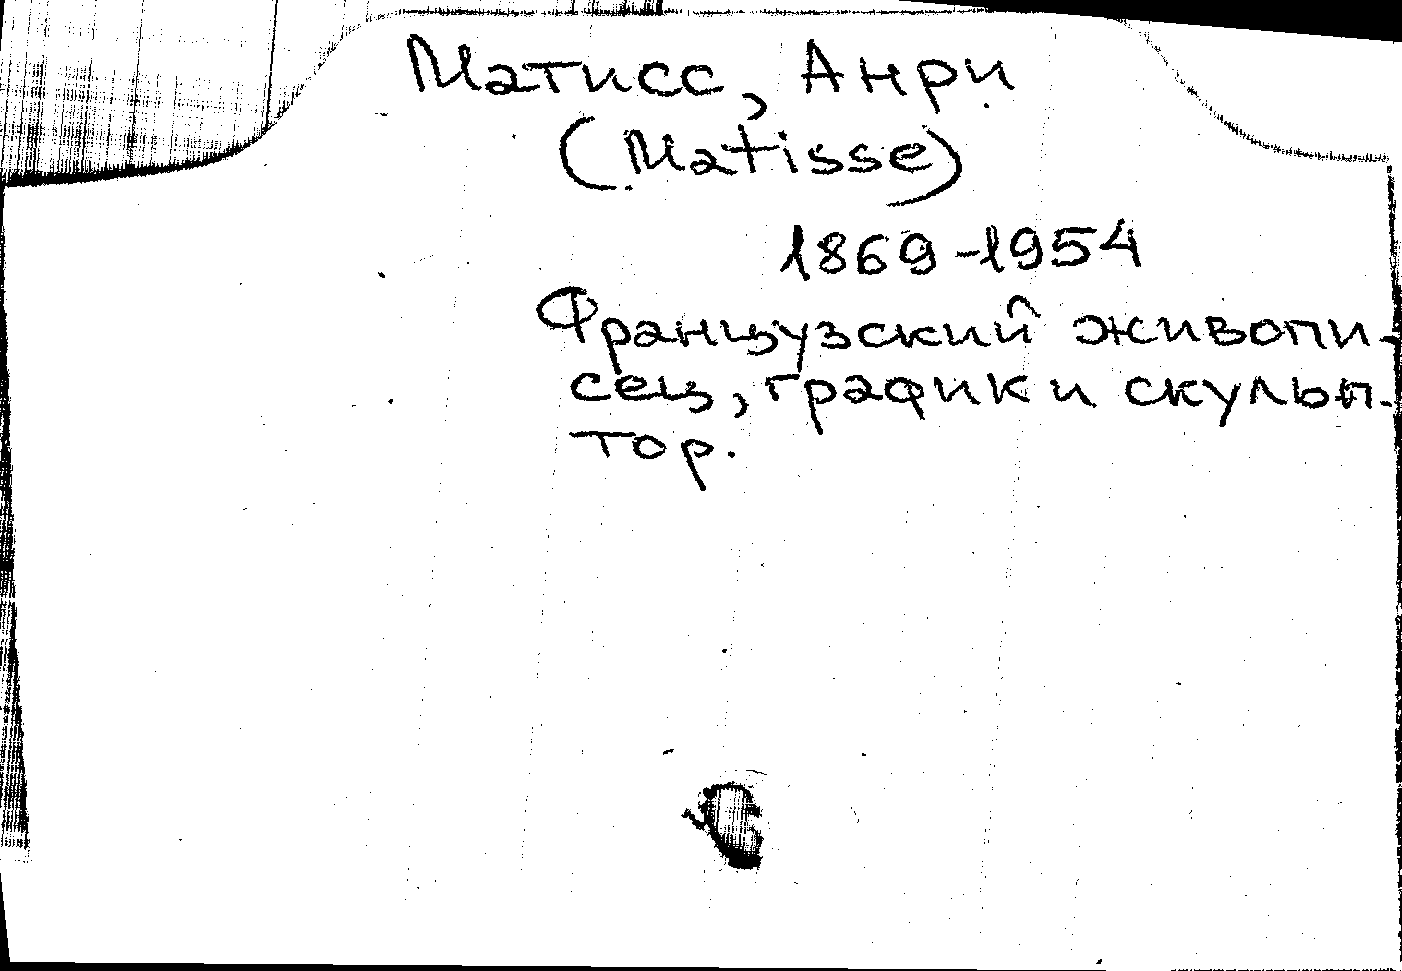 Матисс, Анри
(Matisse)
1869-1954
Французский живопи-
сец, график и скульп-
тор.